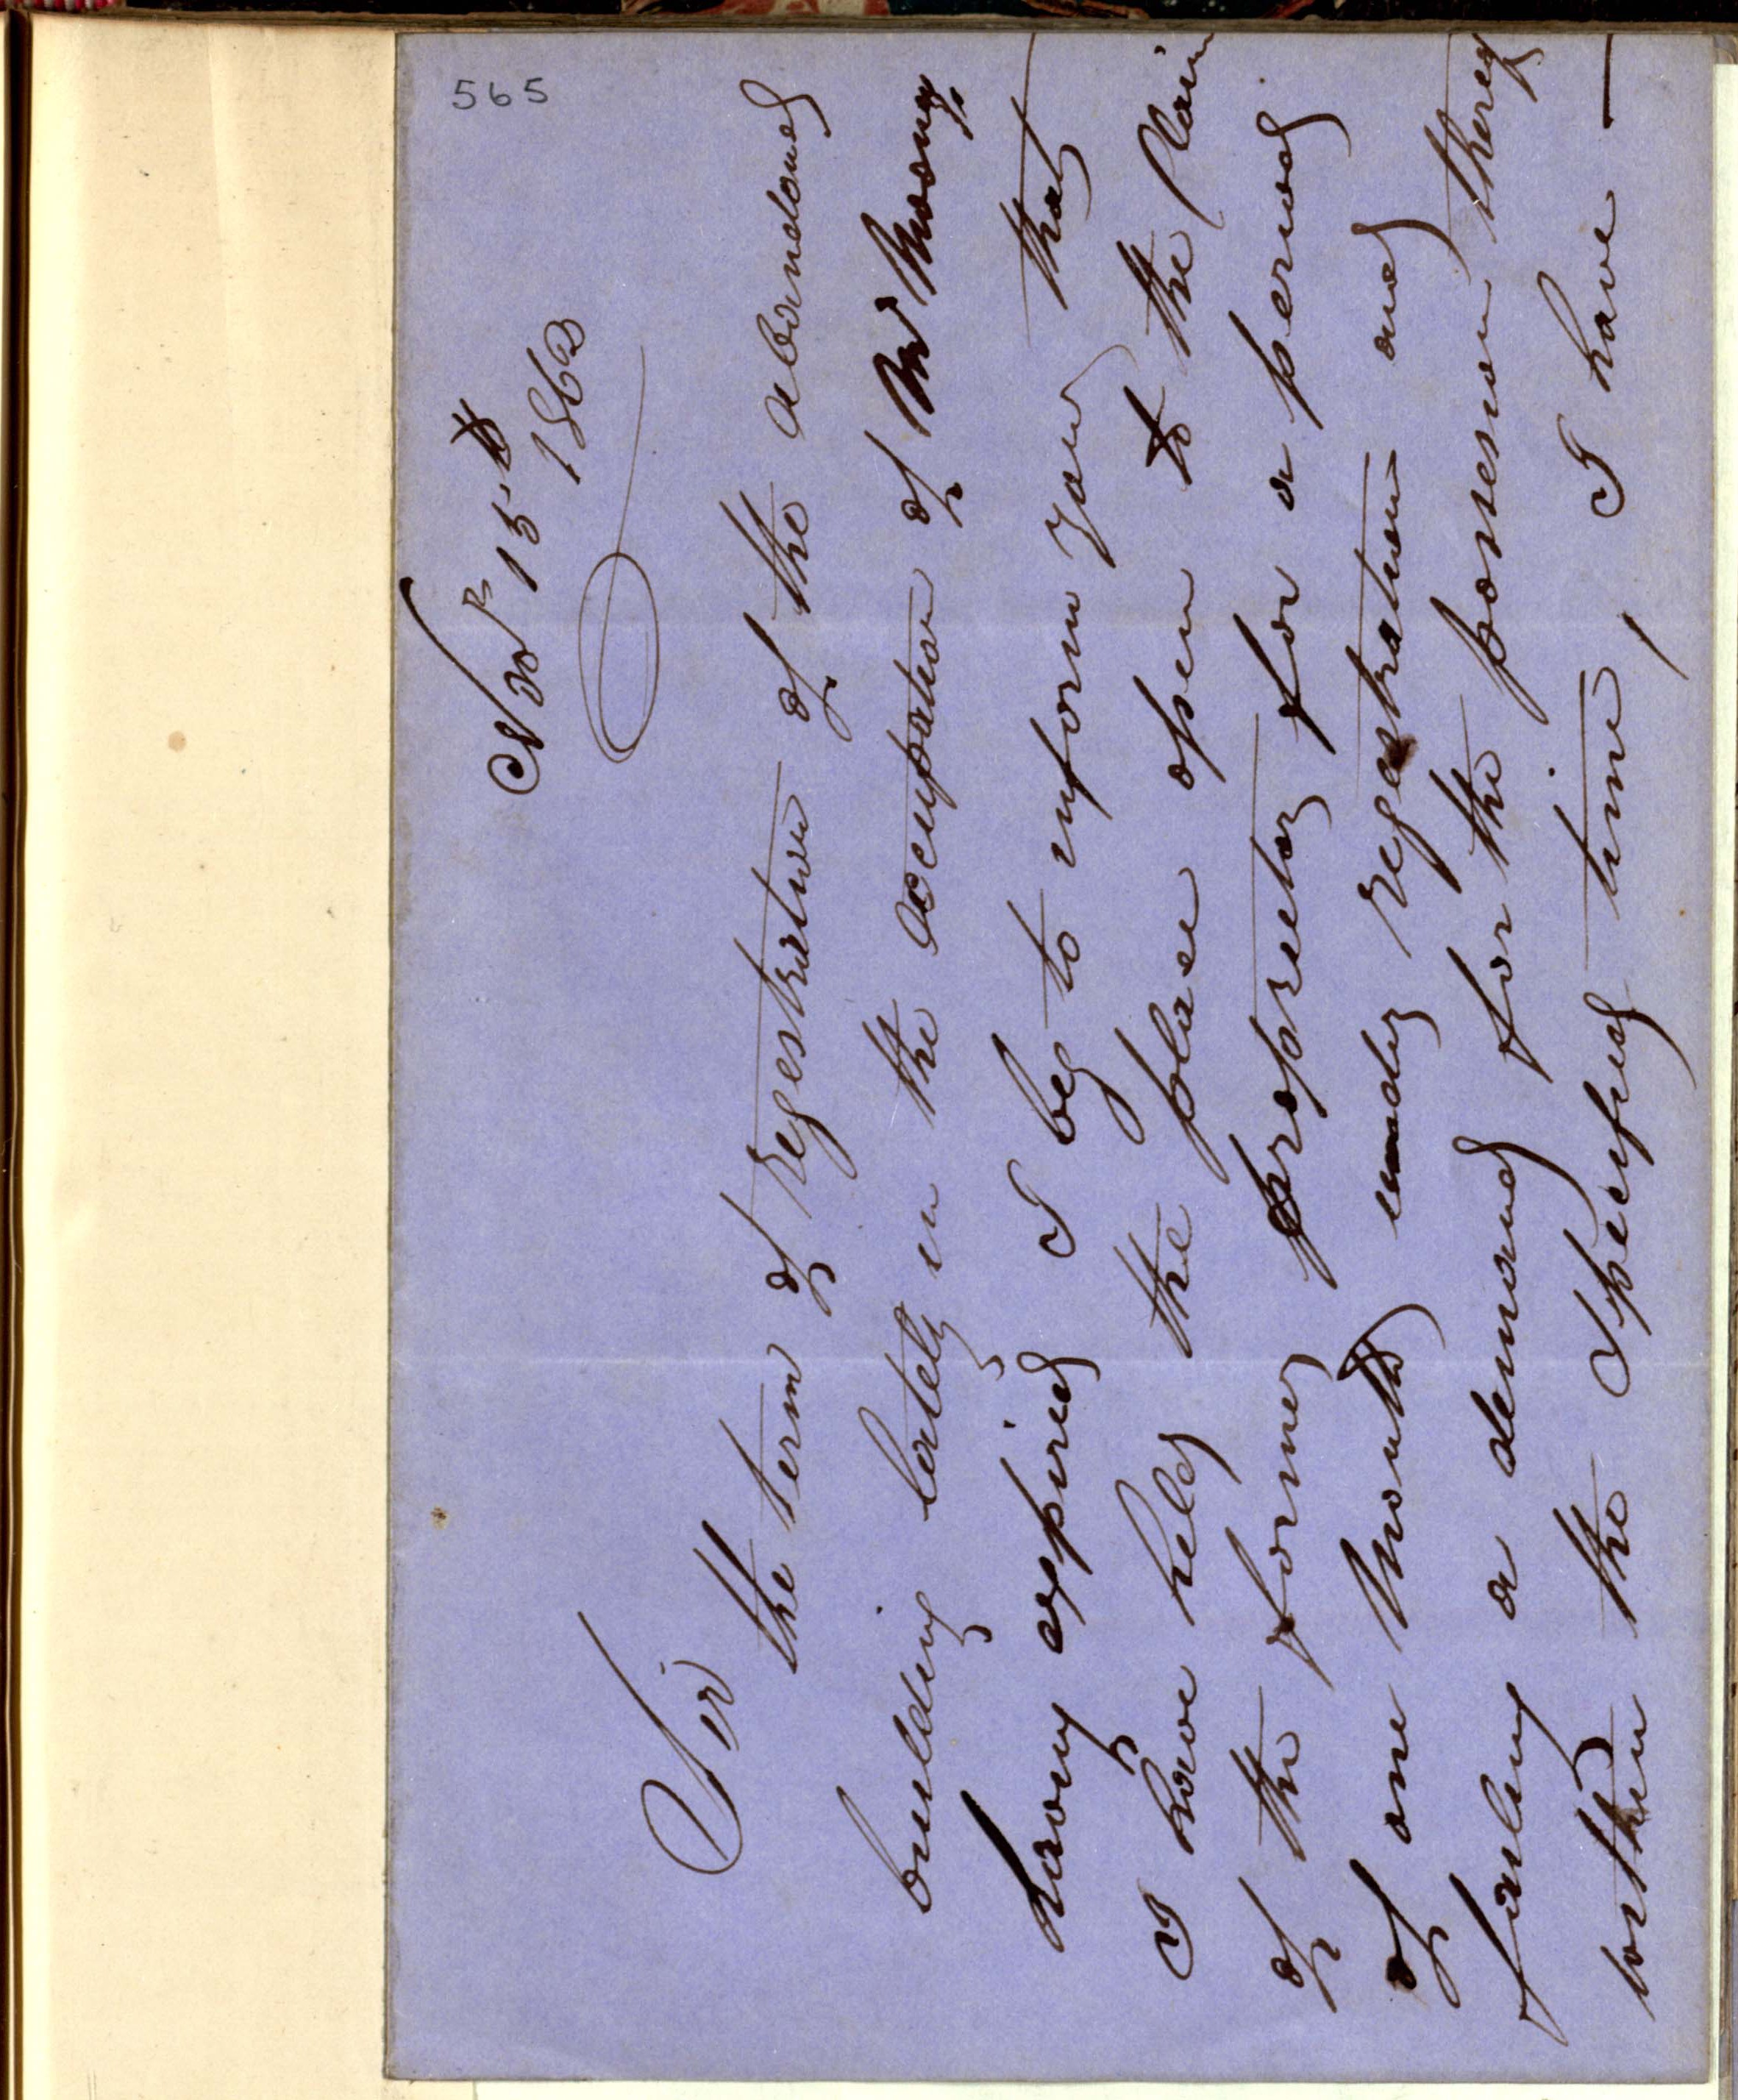 565
Novr 15th
1863
Sir
the term of Regestration of the abandoned
building lately in the occupation of Mr Moony
having expired I beg to inform you that
I have held the place open to the Claim
of the former proprietor for a period
of one Month under Regestration and
failing a demand for the possession thereof
within the Specified time, I have —